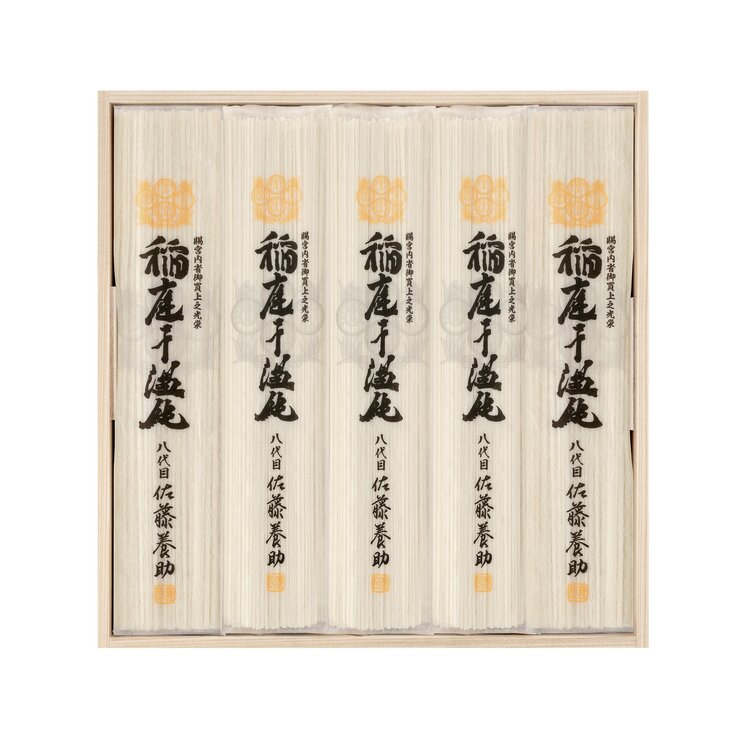 賜宮内省御買上之光栄
稲庭干温飩
八代目 佐藤養助
賜宮内省御買上之光栄
稲庭干温飩
八代目 佐藤養助
賜宮内省御買上之光栄
稲庭干温飩
八代目 佐藤養助
賜宮内省御買上之光栄
稲庭干温飩
八代目 佐藤養助
賜宮内省御買上之光栄
稲庭干温飩
八代目 佐藤養助